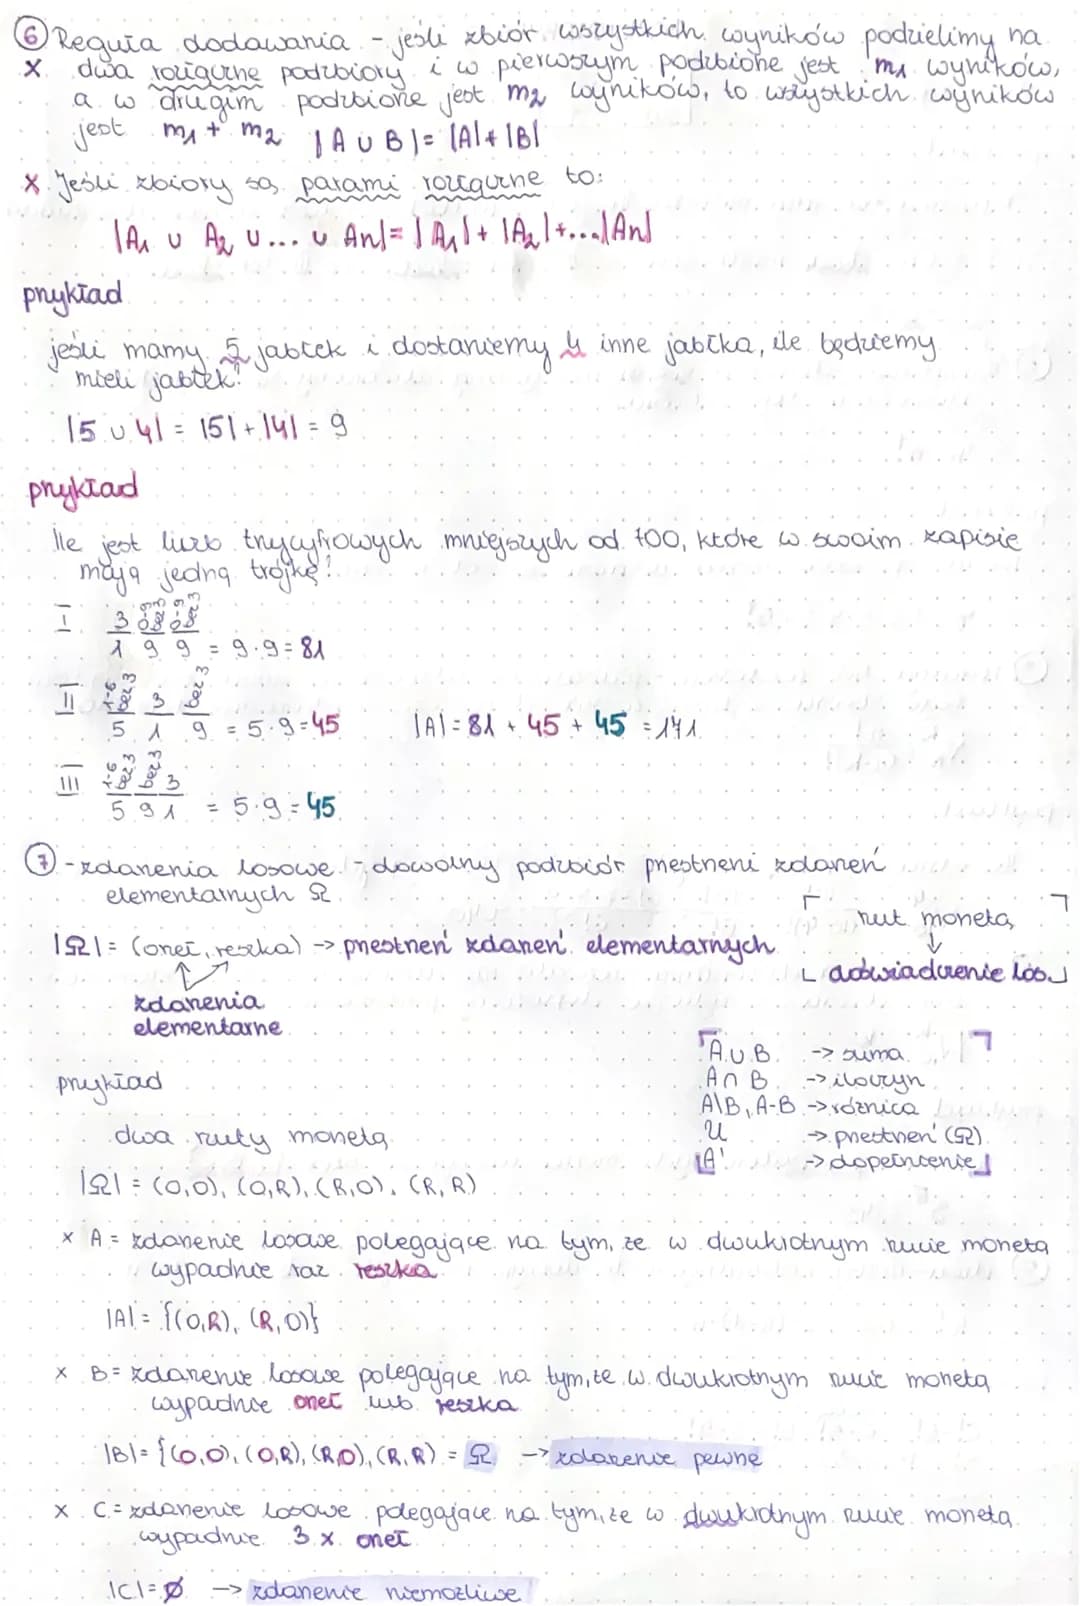 ⑥ Reguła dodawania - jeśli zbiór wszystkich wyników podzielimy na
x dwa rozłączne podzbiory i w pierwszym podzbiorze jest m₁ wyników,
a w drugim podzbiorze jest m₂ wyników, to wszystkich wyników
jest m₁ + m₂ |A ∪ B| = |A| + |B|
x Jeśli zbiory są parami rozłączne to:
|A₁ ∪ A₂ ∪ ... ∪ An| = |A₁| + |A₂| + ... |An|
przykład
jeśli mamy 5 jabłek i dostaniemy 4 inne jabłka, ile będziemy
mieli jabłek?
|5 ∪ 4| = |5| + |4| = 9
przykład
Ile jest liczb trzycyfrowych mniejszych od 700, które w swoim zapisie
mają jedną trójkę?
I 3 0-9 bez 3 0-9 bez 3
1 9 9 = 9·9 = 81
II 1-6 bez 3 3 bez 3
5 1 9 = 5·9 = 45 |A| = 81 + 45 + 45 = 171
III 1-6 bez 3 bez 3 3
5 9 1 = 5·9 = 45
⑦ - zdarzenia losowe - dowolny podzbiór przestrzeni zdarzeń
elementarnych Ω
rzut monetą
↓
doświadczenie los.
|Ω| = (orzeł, reszka) -> przestrzeń zdarzeń elementarnych
zdarzenia
elementarne
A ∪ B -> suma
A ∩ B -> iloczyn
A\B, A-B -> różnica
U -> przestrzeń (Ω)
A' -> dopełnienie
przykład
dwa rzuty monetą
|Ω| = (O,O), (O,R), (R,O), (R,R)
x A = zdarzenie losowe polegające na tym, że w dwukrotnym rzucie monetą
wypadnie raz reszka
|A| = {(O,R), (R,O)}
x B = zdarzenie losowe polegające na tym, że w dwukrotnym rzucie monetą
wypadnie orzeł lub reszka
|B| = {(O,O), (O,R), (R,O), (R,R) = Ω -> zdarzenie pewne
x C = zdarzenie losowe polegające na tym, że w dwukrotnym rzucie monetą
wypadnie 3 x orzeł
|C| = Ø -> zdarzenie niemożliwe